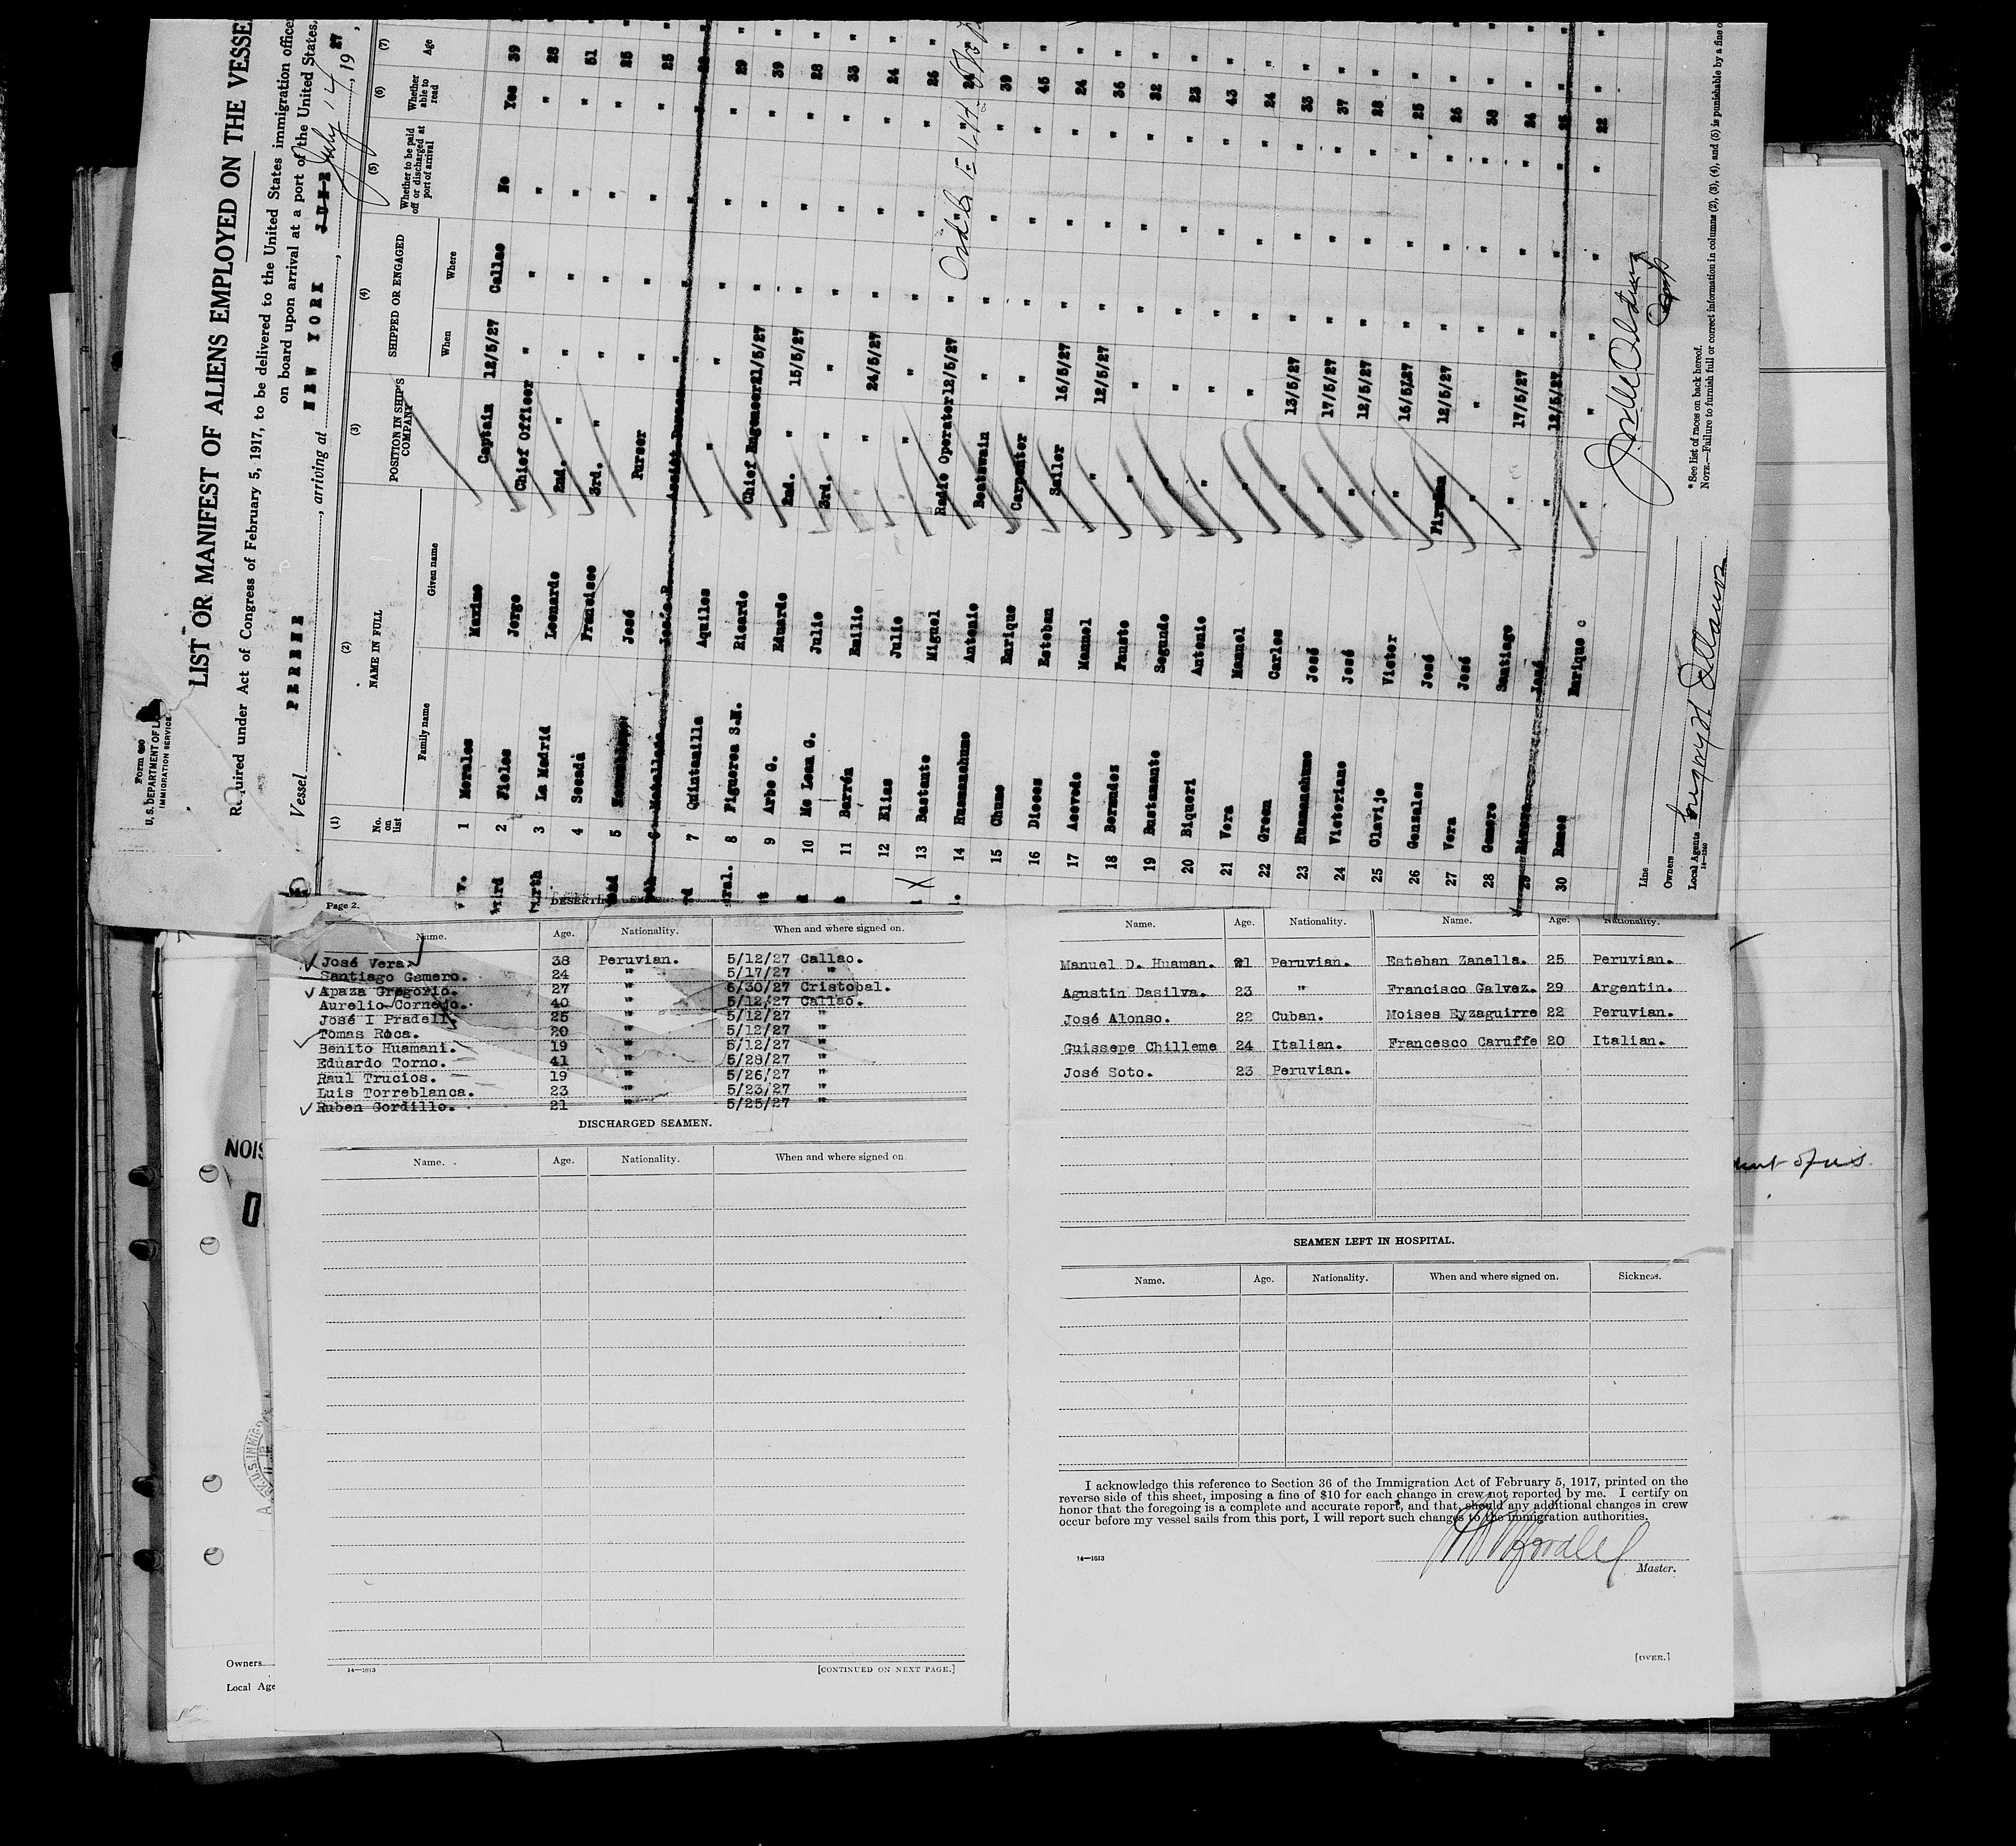 Form 680
U. S. DEPARTMENT OF L
IMMIGRATION SERVICE
LIST OR MANIFEST OF ALIENS EMPLOYED ON THE VESSE
Required under Act of Congress of February 5, 1917, to be delivered to the United States immigration office
on board upon arrival at a port of the United States.
Vessel PERENE, arriving at NEW YORK JUNE July 14, 1927,
(1) (2) (3) (4) (5) (6) (7)
No. on list NAME IN FULL POSITION IN SHIP'S COMPANY SHIPPED OR ENGAGED Whether to be paid off or discharged at port of arrival Whether able to read Age
Family name Given name When Where
1 Morales Maximo Captain 12/5/27 Callao No Yes 39
2 Jieles Jorge Chief Officer " " " " 28
3 La Madrid Leonardo 2nd. " " " " " 51
4 Secada Francisco 3rd. " " " " " 25
5 José Purser " " " " 25
6 José R. " " " "
7 Quintanilla Aquiles " " " " " 29
8 Figueroa S.M. Ricardo Chief Engeneer 21/5/27 " " " 39
9 Arbe G. Eduardo 2nd. " 15/5/27 " " " 28
10 Mc Lean G. Julio 3rd. " " " " " 33
11 Barrón Emilio " 24/5/27 " " " 24
12 Elias Julio " " " " " 26
13 Bastante Miguel Radio Operator 12/5/27 " " " 24
14 Huamanchumo Antonio Boatswain " " " " 39
15 Chumo Enrique Carpenter " " " " 45
16 Dioses Esteban Sailor 16/5/27 " " " 24
17 Acevedo Manuel " 12/5/27 " " " 36
18 Bermudez Fausto " " " " " 32
19 Bustamante Segundo " " " " " 23
20 Biqueri Antonio " " " " " 43
21 Vera Manuel " " " " " 24
22 Green Carlos " 13/5/27 " " " 33
23 Huamanchumo José " 17/5/27 " " " 37
24 Victoriano José " 12/5/27 " " " 28
25 Clavijo Victor " 16/5/27 " " " 25
26 Gonzales José Fireman 12/5/27 " " " 26
27 Vera José " " " " " 38
28 Gamero Santiago " 17/5/27 " " " 24
29 José " 12/5/27 " " " 25
30 Ramos Enrique C " " " " " 22
Line
Owners
Local Agents
14—1240
* See list of races on back hereof.
NOTE.—Failure to furnish full or correct information in columns (2), (3), (4), and (5) is punishable by a fine o
Page 2.
Name. Age. Nationality. When and where signed on.
José Vera. 38 Peruvian. 5/12/27 Callao.
Santiago Gamero. 24 " 5/17/27 "
Apaza Gregorio. 27 " 6/30/27 Cristobal.
Aurelio Cornejo. 40 " 5/12/27 Callao.
José I Pradell. 25 " 5/12/27 "
Tomas Roca. 20 " 5/12/27 "
Benito Huamani. 19 " 5/12/27 "
Eduardo Torno. 41 " 5/28/27 "
Raul Trucios. 19 " 5/26/27 "
Luis Torreblanca. 23 " 5/23/27 "
Ruben Gordillo. 21 " 5/25/27 "
DISCHARGED SEAMEN.
Name. Age. Nationality. When and where signed on.
14—1613
[CONTINUED ON NEXT PAGE.]
Name. Age. Nationality. Name. Age. Nationality.
Manuel D. Huaman. 21 Peruvian. Esteban Zanella. 25 Peruvian.
Agustin Dasilva. 23 " Francisco Galvez. 29 Argentin.
José Alonso. 22 Cuban. Moises Eyzaguirre 22 Peruvian.
Guissepe Chilleme 24 Italian. Francesco Caruffe 20 Italian.
José Soto. 23 Peruvian.
SEAMEN LEFT IN HOSPITAL.
Name. Age. Nationality. When and where signed on. Sickness.
I acknowledge this reference to Section 36 of the Immigration Act of February 5, 1917, printed on the
reverse side of this sheet, imposing a fine of $10 for each change in crew not reported by me. I certify on
honor that the foregoing is a complete and accurate report, and that, should any additional changes in crew
occur before my vessel sails from this port, I will report such changes to the immigration authorities.
14—1613
Master.
[OVER.]
Owners
Local Age